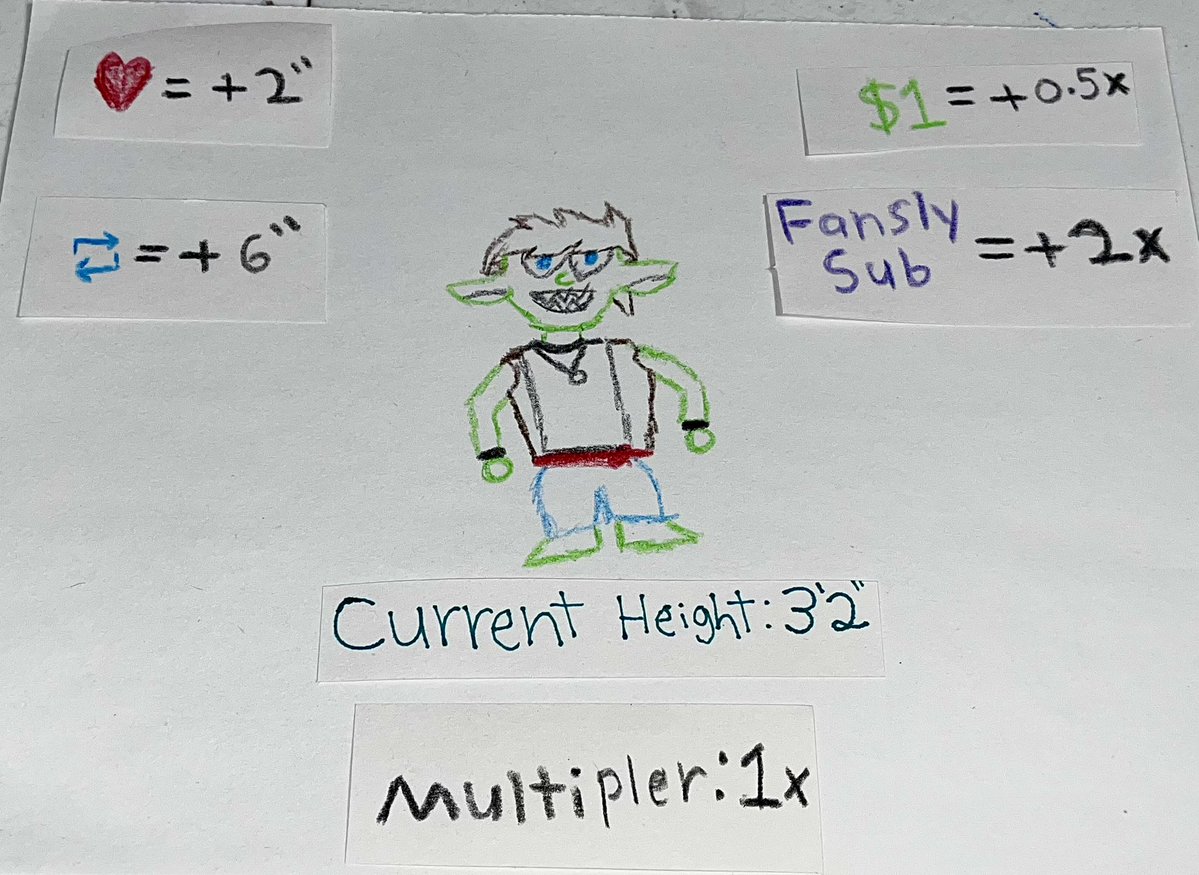 ❤️ = +2"
$1 = +0.5x
🔁 = + 6"
Fansly
Sub = +2x
Current Height: 3'2"
Multipler: 1x